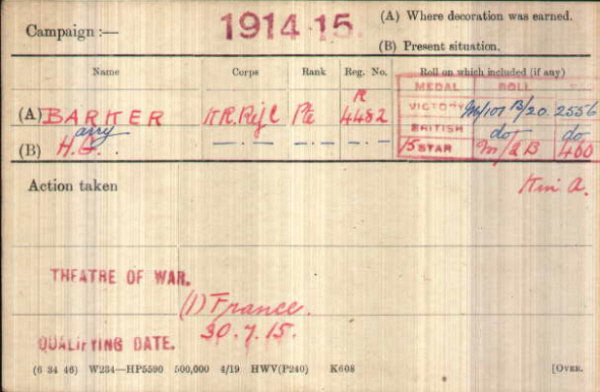 Campaign :— 1914-15 (A) Where decoration was earned.
(B) Present situation.
Name Corps Rank Reg. No. Roll on which included (if any)
MEDAL ROLL
(A) BARKER K.R.Rif C Pte R 4482
VICTORY M/107 B/20. 2556
BRITISH do do
(B) H.G. arry
15 STAR M/2B 460
Action taken
THEATRE OF WAR.
(1) France.
QUALIFYING DATE. 30.7.15.
(6 34 46) W234—HP5590 500,000 4/19 HWV(P240) K608 [OVER.